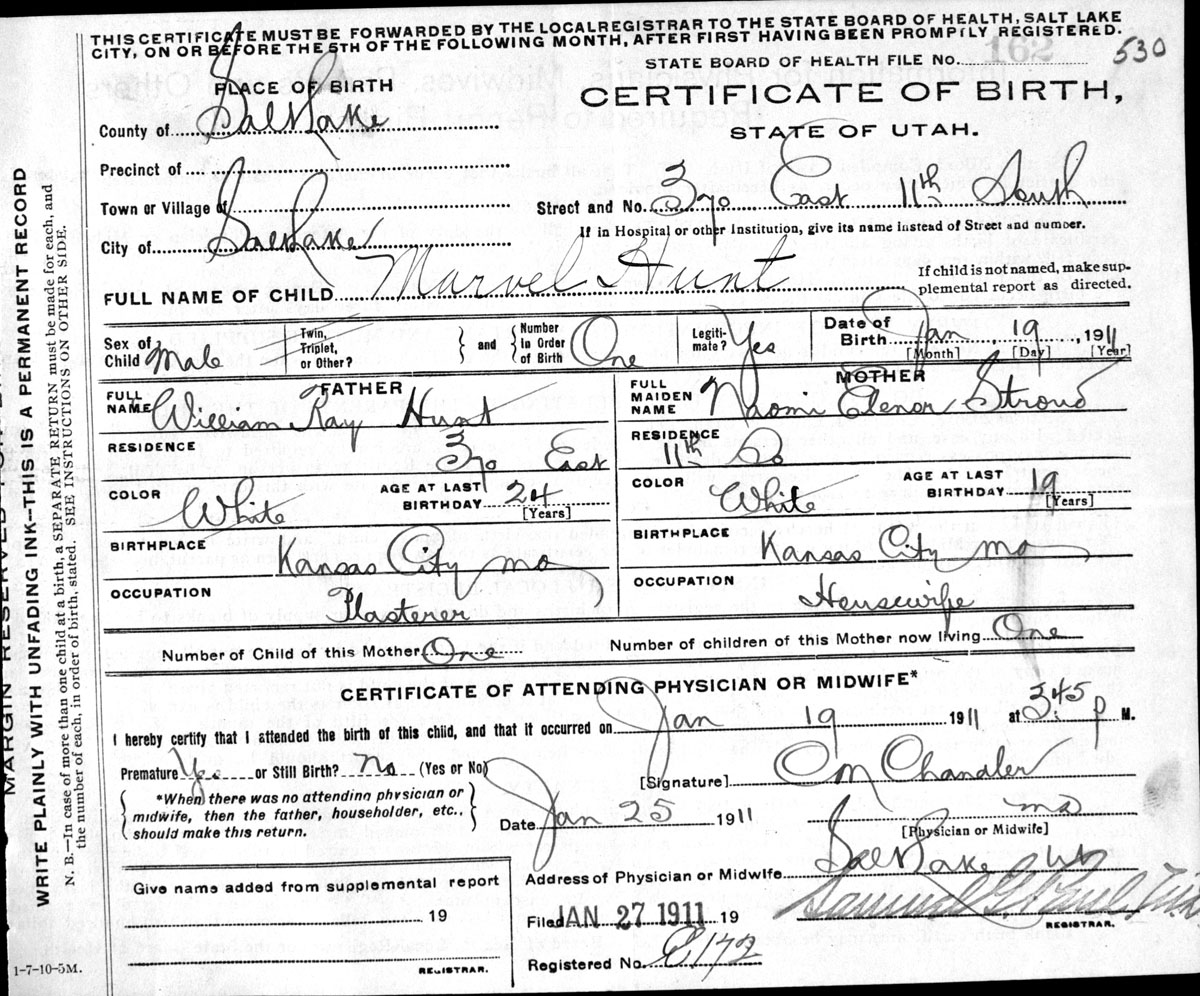 THIS CERTIFICATE MUST BE FORWARDED BY THE LOCAL REGISTRAR TO THE STATE BOARD OF HEALTH, SALT LAKE
CITY, ON OR BEFORE THE 5TH OF THE FOLLOWING MONTH, AFTER FIRST HAVING BEEN PROMPTLY REGISTERED.
STATE BOARD OF HEALTH FILE No. 162 530
PLACE OF BIRTH
CERTIFICATE OF BIRTH,
STATE OF UTAH.
County of Salt Lake
Precinct of
Town or Village of
Street and No. 370 East 11th South
If in Hospital or other Institution, give its name instead of Street and number.
City of Salt Lake
FULL NAME OF CHILD Marvel Hunt
If child is not named, make sup-
plemental report as directed.
Sex of Child Male
Twin, Triplet, or Other?
and
Number in Order of Birth One
Legiti-mate? Yes
Date of Birth Jan 19, 1911
[Month] [Day] [Year]
FATHER
FULL NAME William Ray Hunt
MOTHER
FULL MAIDEN NAME Naomi Elenor Stroud
RESIDENCE 370 East
RESIDENCE 11th So
COLOR White
AGE AT LAST BIRTHDAY 24 [Years]
COLOR White
AGE AT LAST BIRTHDAY 19 [Years]
BIRTHPLACE Kansas City Mo
BIRTHPLACE Kansas City Mo
OCCUPATION Plasterer
OCCUPATION Housewife
Number of Child of this Mother One
Number of children of this Mother now living One
CERTIFICATE OF ATTENDING PHYSICIAN OR MIDWIFE*
I hereby certify that I attended the birth of this child, and that it occurred on Jan 19 1911 at 3:45 P M.
Premature Yes or Still Birth? No (Yes or No)
[Signature] Chandler
*When there was no attending physician or
midwife, then the father, householder, etc.,
should make this return.
Date Jan 25 1911
MD
[Physician or Midwife]
Address of Physician or Midwife Salt Lake Ut
Give name added from supplemental report
19
REGISTRAR.
Filed JAN 27 1911 19
Samuel G Paul
REGISTRAR.
Registered No. C172
1-7-10-5M.
MARGIN RESERVED
WRITE PLAINLY WITH UNFADING INK--THIS IS A PERMANENT RECORD
N. B.—In case of more than one child at a birth, a SEPARATE RETURN must be made for each, and
the number of each, in order of birth, stated. SEE INSTRUCTIONS ON OTHER SIDE.